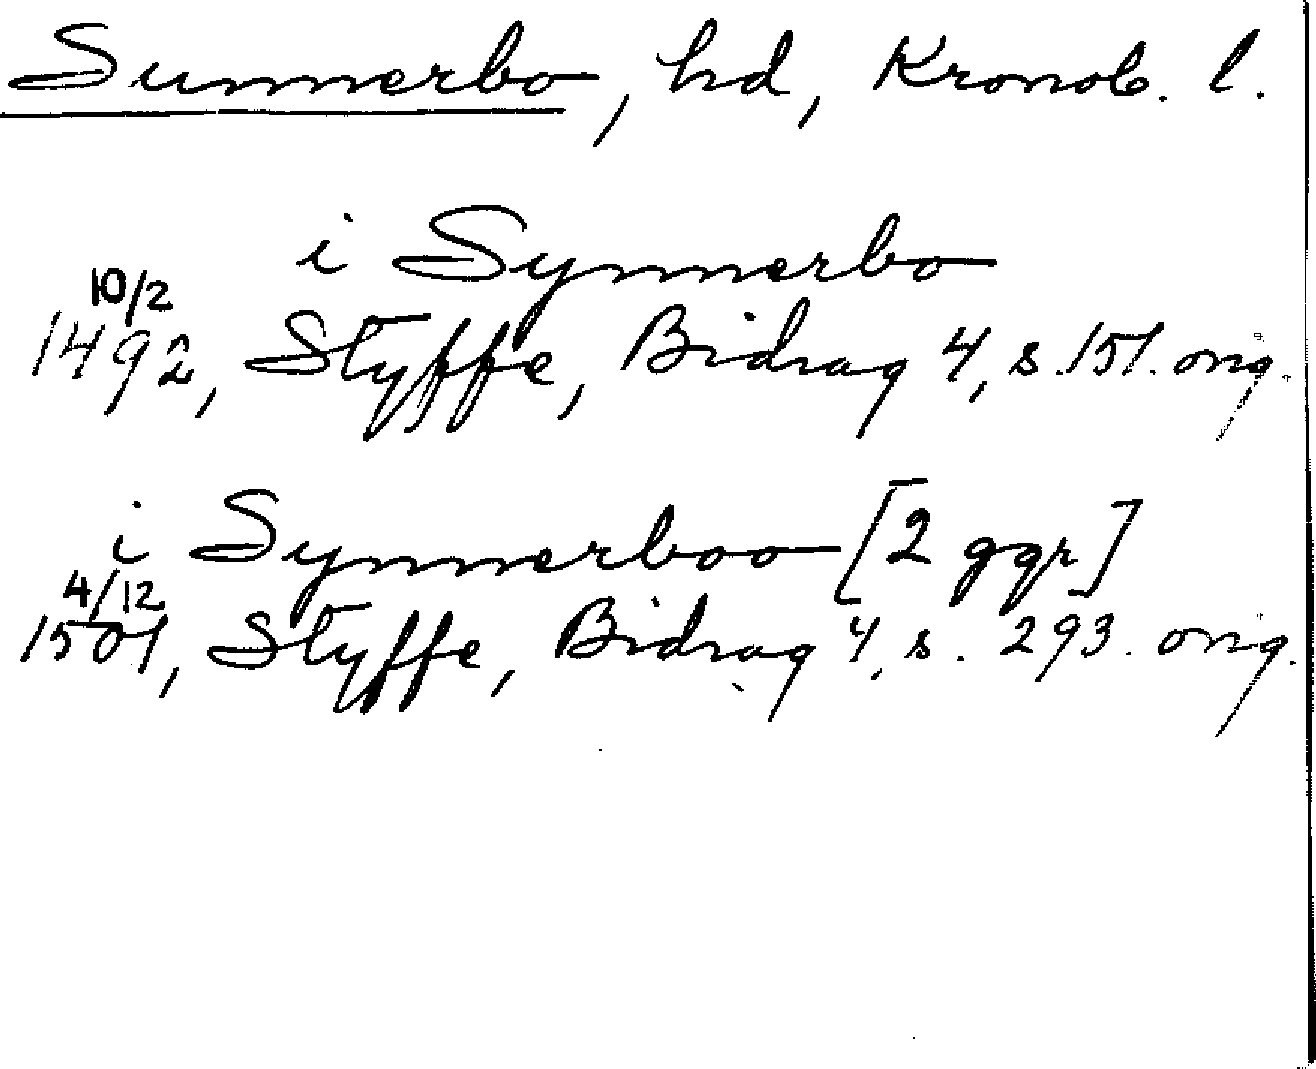 Sunnerbo, hd, Kronob. l.
i Synnerbo
10/2
1492, Styffe, Bidrag 4, s. 151. orig.
i Synnerboo [2 ggr]
4/12
1501, Styffe, Bidrag 4, s. 293. orig.